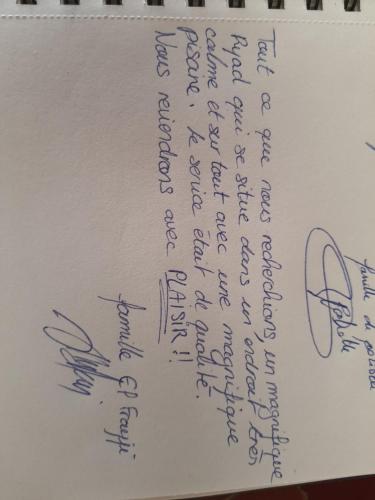 famille de
Tout ce que nous recherchions, un magnifique
Ryad qui se situe dans un endroit très
calme et surtout avec une magnifique
piscine. Le service était de qualité.
Nous reviendrons avec PLAISIR !!
famille El Frayji